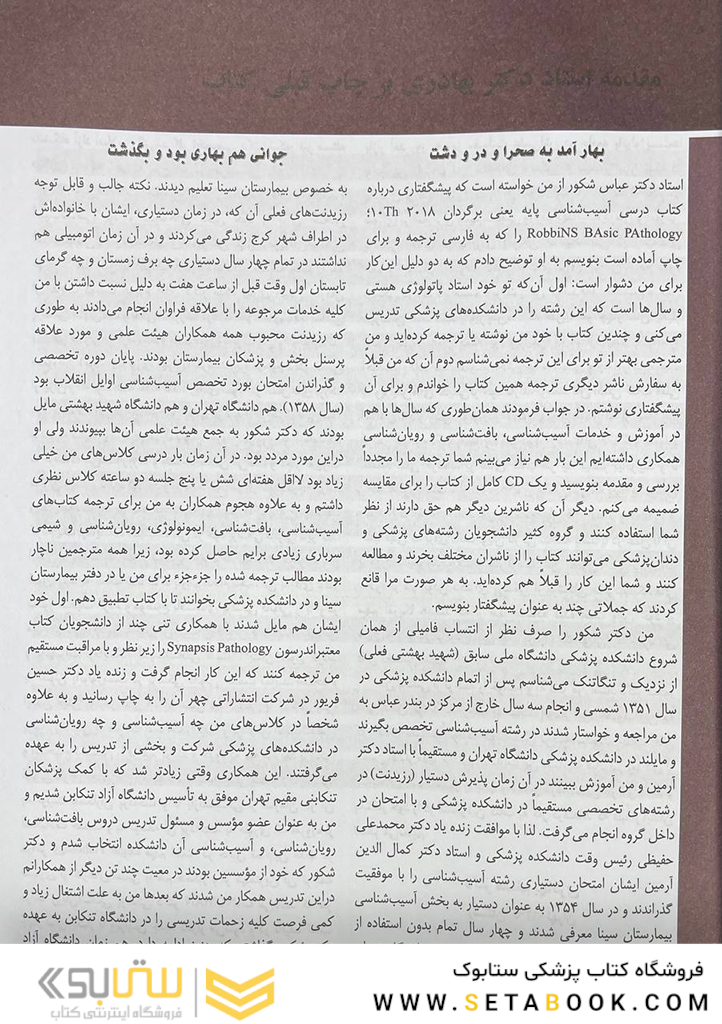 مقدمه استاد دکتر بهادری بر چاپ قبلی کتاب
بهار آمد به صحرا و در و دشت
جوانی هم بهاری بود و بگذشت
استاد دکتر عباس شکور از من خواسته است که پیشگفتاری درباره
کتاب درسی آسیب‌شناسی پایه یعنی برگردان ۲۰۱۸ ۱۰Th؛
RobbiNS BAsic PAthology را که به فارسی ترجمه و برای
چاپ آماده است بنویسم به او توضیح دادم که به دو دلیل این‌کار
برای من دشوار است: اول آن‌که تو خود استاد پاتولوژی هستی
و سال‌ها است که این رشته را در دانشکده‌های پزشکی تدریس
می‌کنی و چندین کتاب با خود من نوشته یا ترجمه کرده‌اید و من
مترجمی بهتر از تو برای این ترجمه نمی‌شناسم دوم آن که من قبلاً
به سفارش ناشر دیگری ترجمه همین کتاب را خواندم و برای آن
پیشگفتاری نوشتم. در جواب فرمودند همان‌طوری که سال‌ها با هم
در آموزش و خدمات آسیب‌شناسی، بافت‌شناسی و رویان‌شناسی
همکاری داشته‌ایم این بار هم نیاز می‌بینم شما ترجمه ما را مجدداً
بررسی و مقدمه بنویسید و یک CD کامل از کتاب را برای مقایسه
ضمیمه می‌کنم. دیگر آن که ناشرین دیگر هم حق دارند از نظر
شما استفاده کنند و گروه کثیر دانشجویان رشته‌های پزشکی و
دندان‌پزشکی می‌توانند کتاب را از ناشران مختلف بخرند و مطالعه
کنند و شما این کار را قبلاً هم کرده‌اید. به هر صورت مرا قانع
کردند که جملاتی چند به عنوان پیشگفتار بنویسم.
من دکتر شکور را صرف نظر از انتساب فامیلی از همان
شروع دانشکده پزشکی دانشگاه ملی سابق (شهید بهشتی فعلی)
از نزدیک و تنگاتنک می‌شناسم پس از اتمام دانشکده پزشکی در
سال ۱۳۵۱ شمسی و انجام سه سال خارج از مرکز در بندر عباس به
من مراجعه و خواستار شدند در رشته آسیب‌شناسی تخصص بگیرند
و مایلند در دانشکده پزشکی دانشگاه تهران و مستقیماً با استاد دکتر
آرمین و من آموزش ببینند در آن زمان پذیرش دستیار (رزیدنت) در
رشته‌های تخصصی مستقیماً در دانشکده پزشکی و با امتحان در
داخل گروه انجام می‌گرفت. لذا با موافقت زنده یاد دکتر محمدعلی
حفیظی رئیس وقت دانشکده پزشکی و استاد دکتر کمال الدین
آرمین ایشان امتحان دستیاری رشته آسیب‌شناسی را با موفقیت
گذراندند و در سال ۱۳۵۴ به عنوان دستیار به بخش آسیب‌شناسی
بیمارستان سینا معرفی شدند و چهار سال تمام بدون استفاده از
به خصوص بیمارستان سینا تعلیم دیدند. نکته جالب و قابل توجه
رزیدنت‌های فعلی آن که، در زمان دستیاری، ایشان با خانواده‌اش
در اطراف شهر کرج زندگی می‌کردند و در آن زمان اتومبیلی هم
نداشتند در تمام چهار سال دستیاری چه برف زمستان و چه گرمای
تابستان اول وقت قبل از ساعت هفت به دلیل نسبت داشتن با من
کلیه خدمات مرجوعه را با علاقه فراوان انجام می‌دادند به طوری
که رزیدنت محبوب همه همکاران هیئت علمی و مورد علاقه
پرسنل بخش و پزشکان بیمارستان بودند. پایان دوره تخصصی
و گذراندن امتحان بورد تخصص آسیب‌شناسی اوایل انقلاب بود
(سال ۱۳۵۸). هم دانشگاه تهران و هم دانشگاه شهید بهشتی مایل
بودند که دکتر شکور به جمع هیئت علمی آن‌ها بپیوندند ولی او
دراین مورد مردد بود. در آن زمان بار درسی کلاس‌های من خیلی
زیاد بود لااقل هفته‌ای شش یا پنج جلسه دو ساعته کلاس نظری
داشتم و به علاوه هجوم همکاران به من برای ترجمه کتاب‌های
آسیب‌شناسی، بافت‌شناسی، ایمونولوژی، رویان‌شناسی و شیمی
سرباری زیادی برایم حاصل کرده بود، زیرا همه مترجمین ناچار
بودند مطالب ترجمه شده را جزءجزء برای من یا در دفتر بیمارستان
سینا و در دانشکده پزشکی بخوانند تا با کتاب تطبیق دهم. اول خود
ایشان هم مایل شدند با همکاری تنی چند از دانشجویان کتاب
معتبراندرسون Synapsis Pathology را زیر نظر و با مراقبت مستقیم
من ترجمه کنند که این کار انجام گرفت و زنده یاد دکتر حسین
فریور در شرکت انتشاراتی چهر آن را به چاپ رسانید و به علاوه
شخصاً در کلاس‌های من چه آسیب‌شناسی و چه رویان‌شناسی
در دانشکده‌های پزشکی شرکت و بخشی از تدریس را به عهده
می‌گرفتند. این همکاری وقتی زیادتر شد که با کمک پزشکان
تنکابنی مقیم تهران موفق به تأسیس دانشگاه آزاد تنکابن شدیم و
من به عنوان عضو مؤسس و مسئول تدریس دروس بافت‌شناسی،
رویان‌شناسی، و آسیب‌شناسی آن دانشکده انتخاب شدم و دکتر
شکور که خود از مؤسسین بودند در معیت چند تن دیگر از همکارانم
دراین تدریس همکار من شدند که بعدها من به علت اشتغال زیاد و
کمی فرصت کلیه زحمات تدریسی را در دانشگاه تنکابن به عهده
فروشگاه کتاب پزشکی ستابوک
WWW.SETABOOK.COM
ستابوک
فروشگاه اینترنتی کتاب